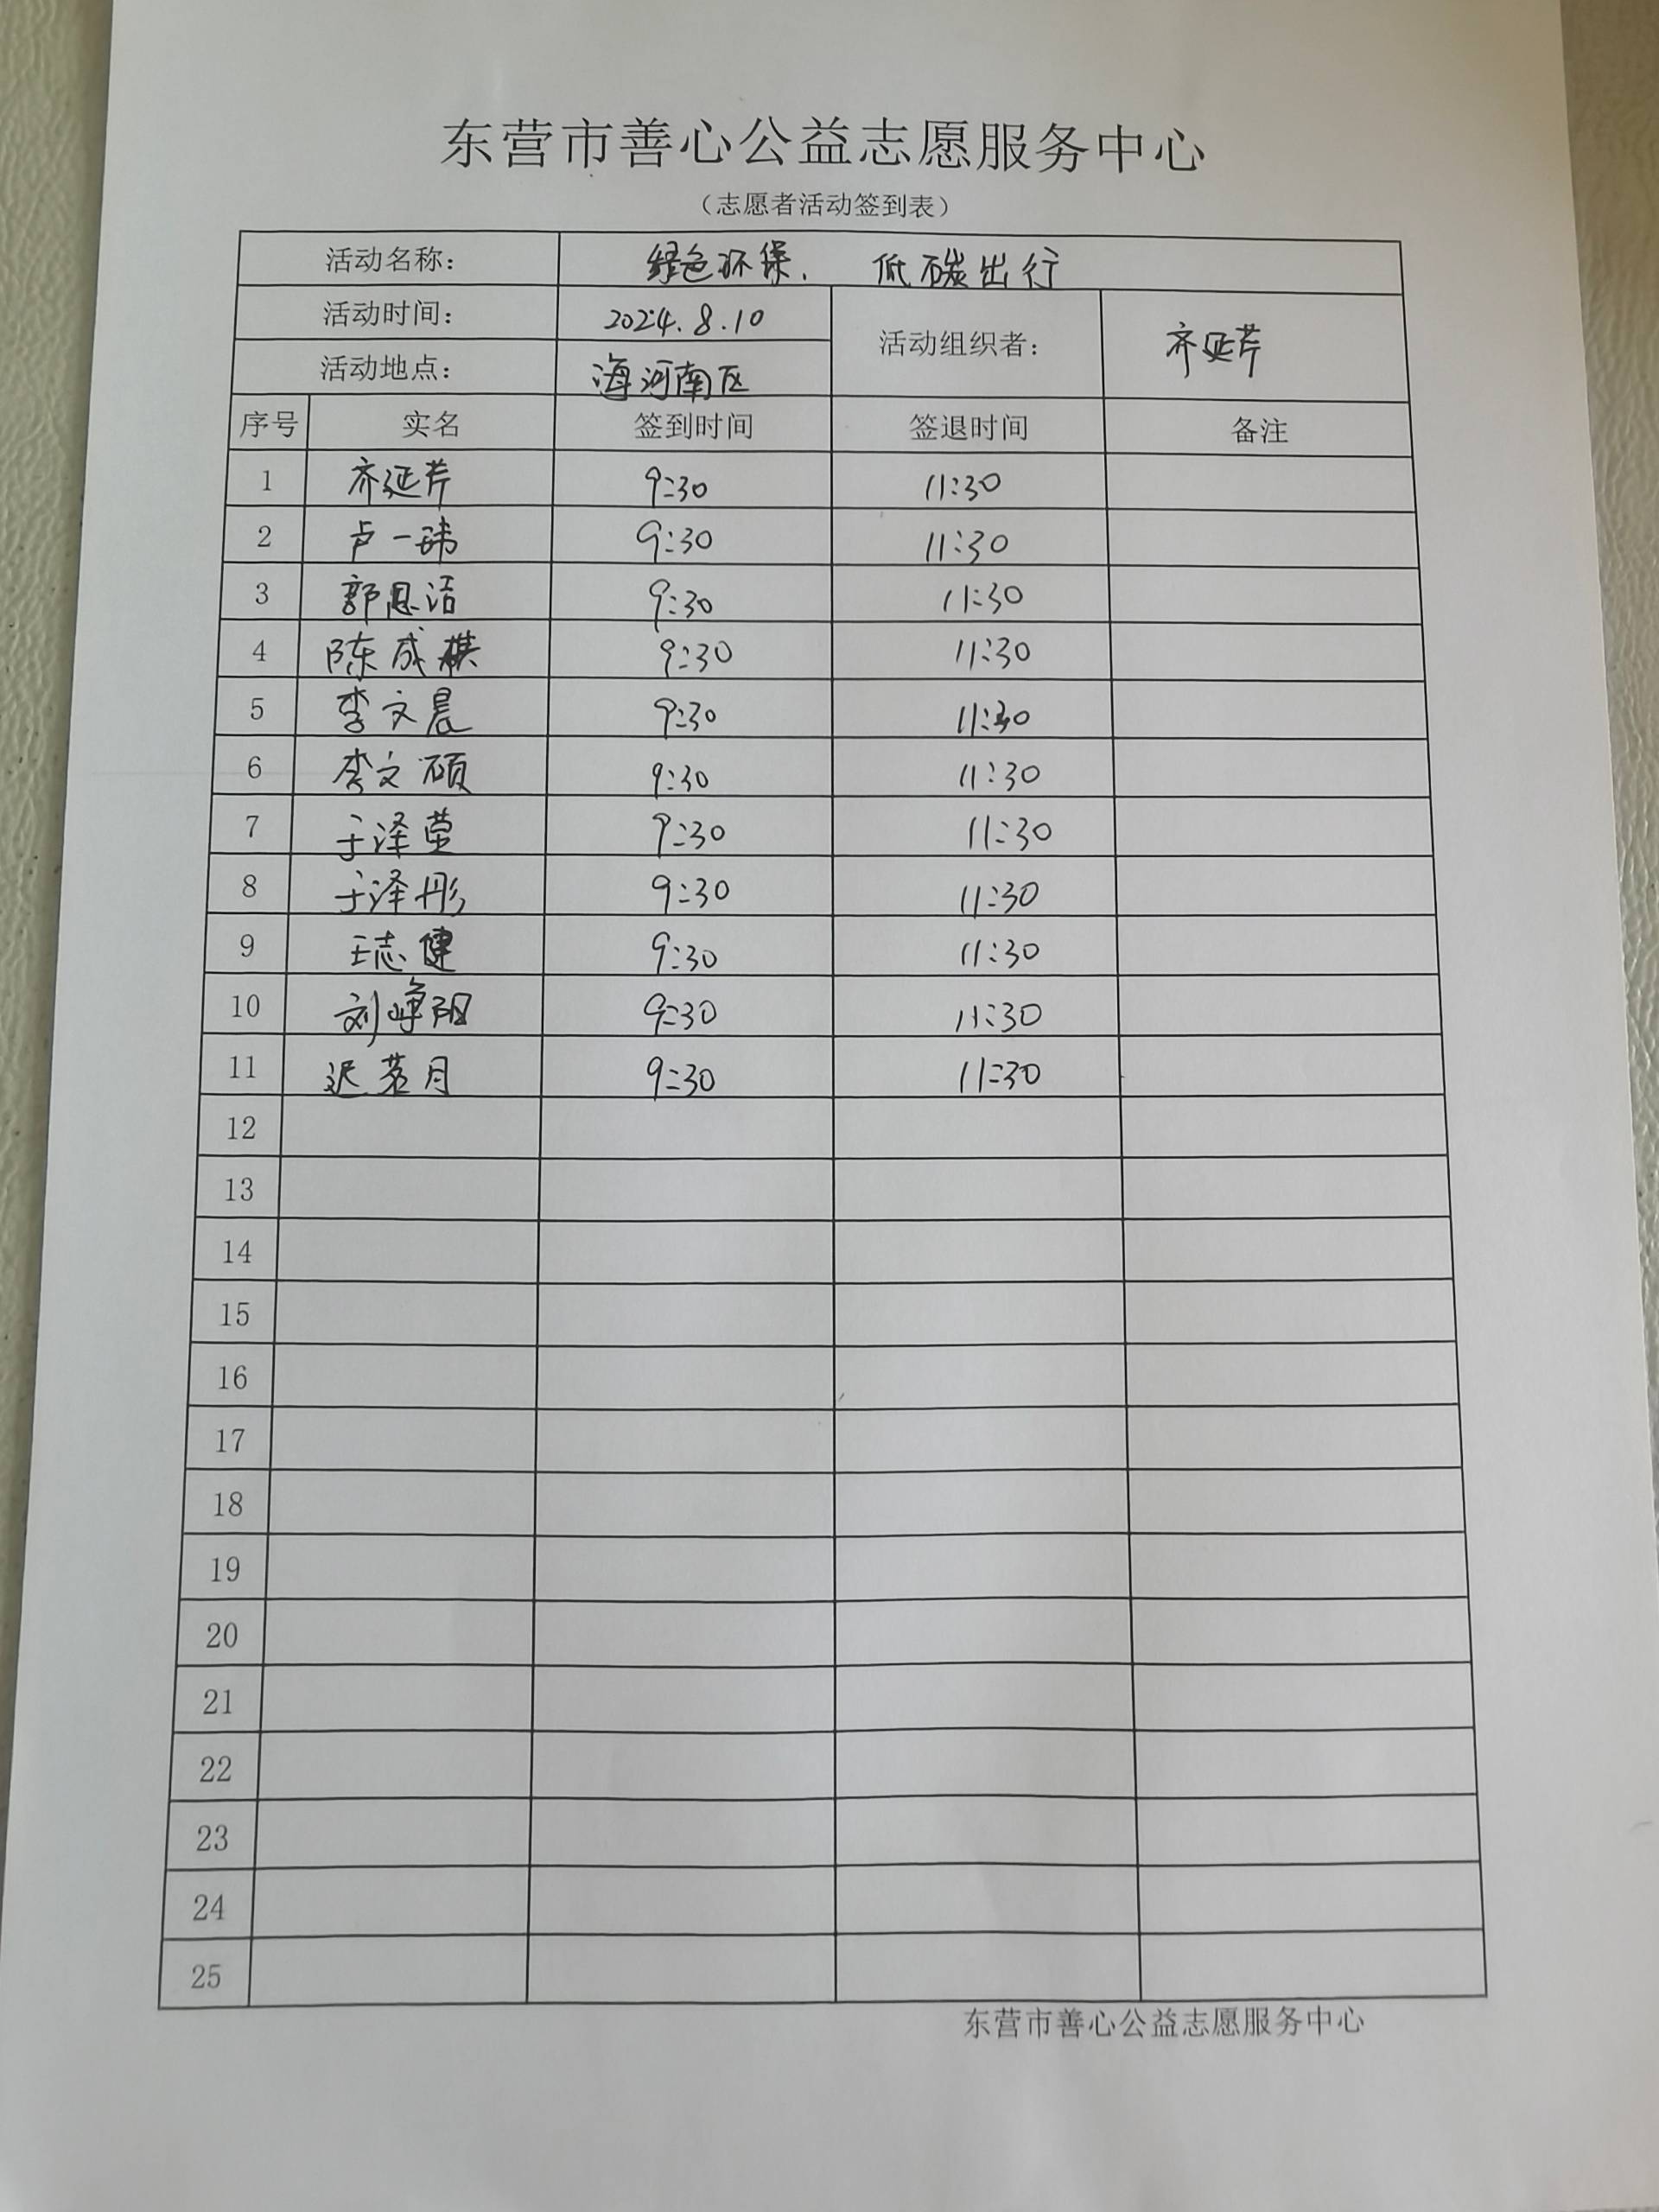 东营市善心公益志愿服务中心
（志愿者活动签到表）
活动名称： 绿色环保、 低碳出行
活动时间： 2024.8.10 活动组织者： 齐延芹
活动地点： 海河南区
序号 实名 签到时间 签退时间 备注
1 齐延芹 9:30 11:30
2 卢一玮 9:30 11:30
3 郭思洁 9:30 11:30
4 陈成棋 9:30 11:30
5 李文晨 9:30 11:30
6 李文硕 9:30 11:30
7 于泽莹 9:30 11:30
8 于泽彤 9:30 11:30
9 王志健 9:30 11:30
10 刘峥阳 9:30 11:30
11 迟茗月 9:30 11:30
12
13
14
15
16
17
18
19
20
21
22
23
24
25
东营市善心公益志愿服务中心